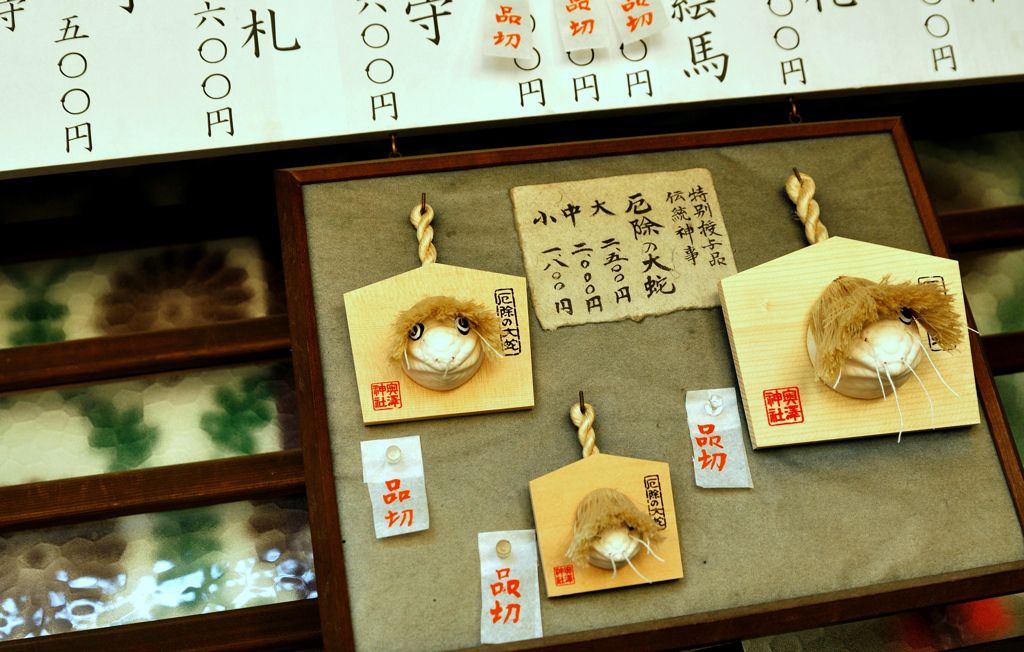 守
五〇〇円
六〇〇円
札
〇〇円
守
品切
〇〇円
品切
〇〇円
品切
〇〇円
絵馬
〇〇円
札
〇〇円
特別授与品
伝統神事
厄除の大蛇
大 二、五〇〇円
中 二、〇〇〇円
小 一、八〇〇円
厄除の大蛇
奥澤神社
品切
厄除の大蛇
奥澤神社
品切
奥澤神社
品切